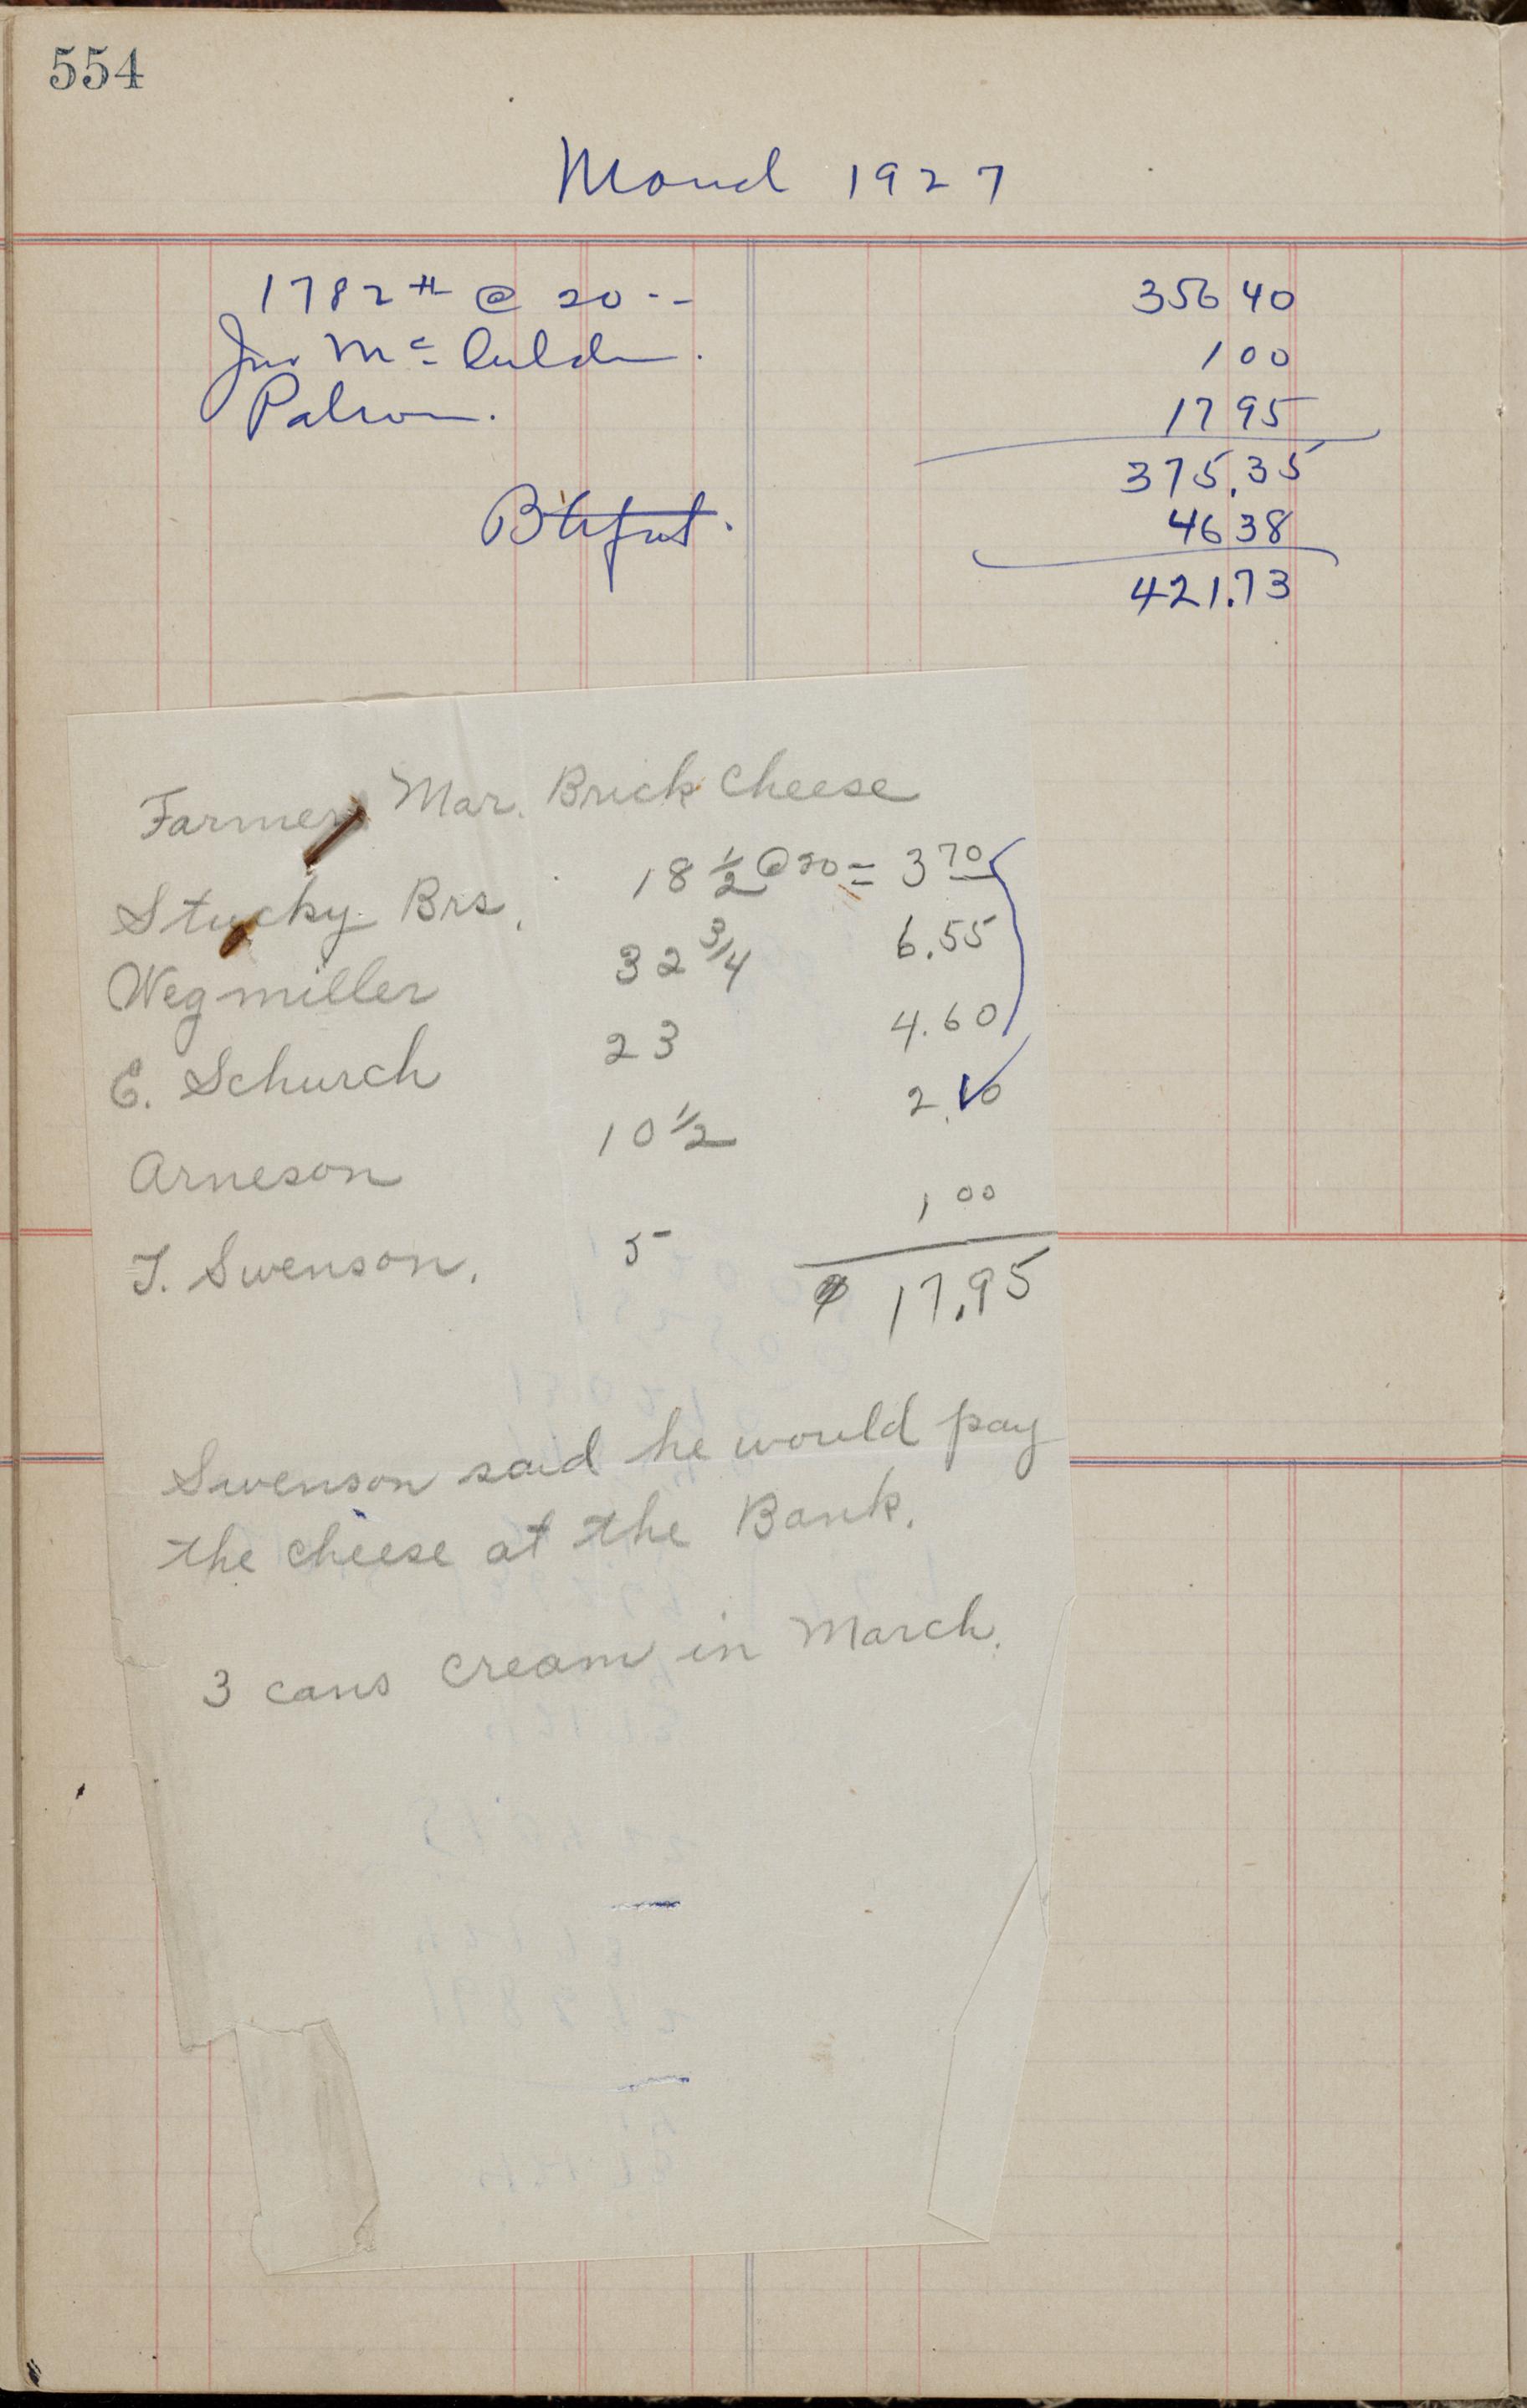 554
March 1927
1782 # @ 20 -- 356 40
Jno Mc 1 00
Patron. 17 95
375.35
46 38
421.73
Farmers Mar. Brick Cheese
Stucky Brs. 18 1/2 @ 20 = 3 70
Wegmiller 32 3/4 6.55
E. Schurch 23 4.60
Arneson 10 1/2 2.10
T. Swenson. 5 1 00
$ 17.95
Swenson said he would pay
the cheese at the Bank.
3 cans cream in March.